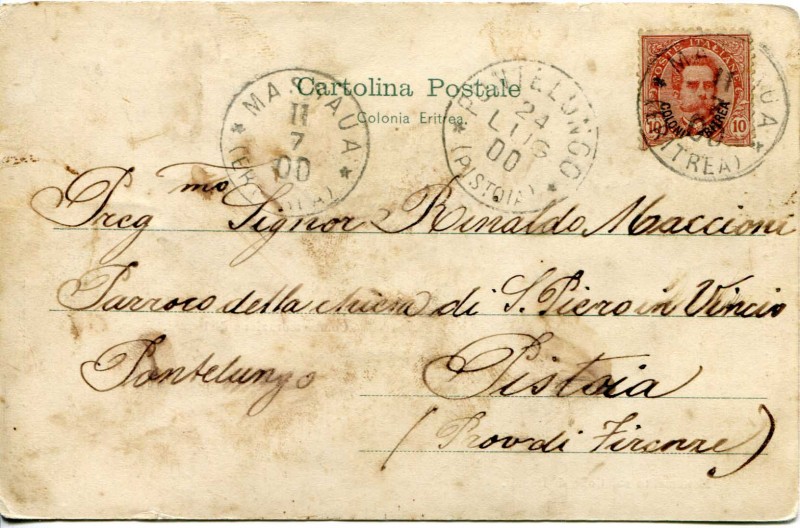 Cartolina Postale
Colonia Eritrea.
MASSAUA
11
7
00
(ERITREA)
PONTELUNGO
24
LUG
00
(PISTOIA)
POSTE ITALIANE
COLONIA ERITREA
10 10
MASSAUA
11
(ERITREA)
Preg mo Signor Rinaldo Maccioni
Parroco della chiesa di S. Piero in Vincio
Pontelungo Pistoia
(Prov di Firenze)